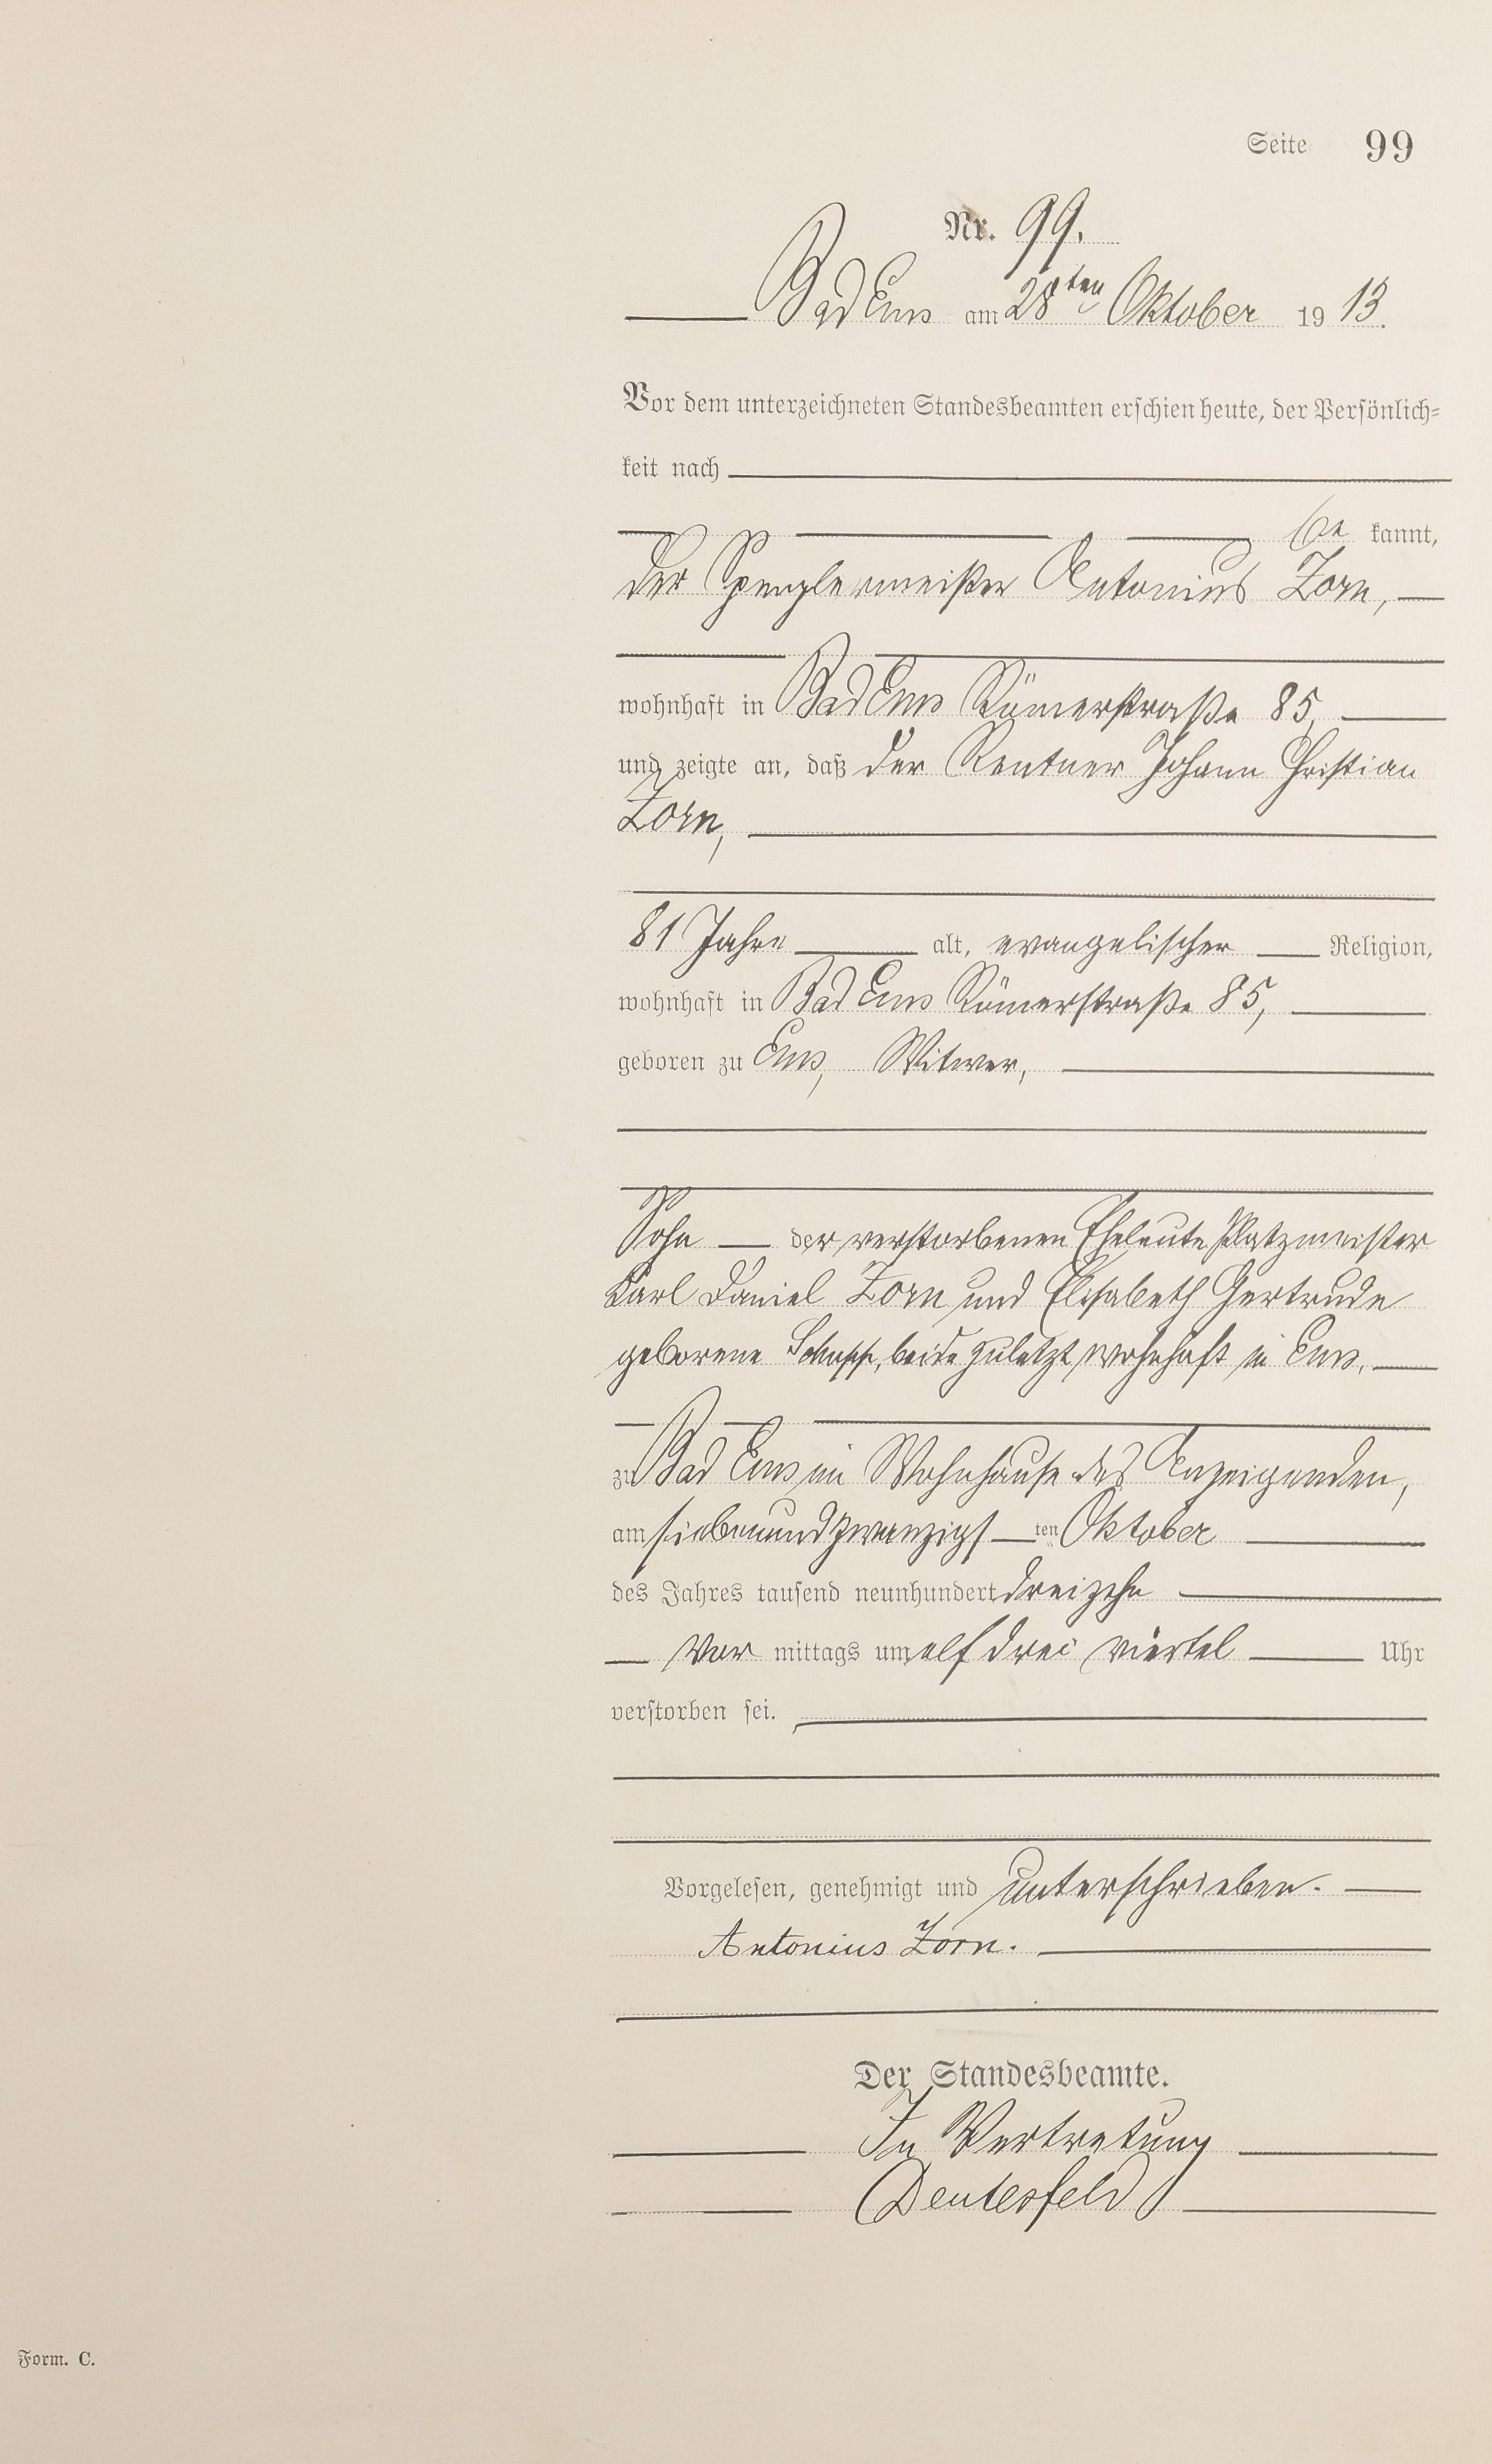 Seite 99
Nr. 99.
Bad Ems am 28ten Oktober 1913.
Vor dem unterzeichneten Standesbeamten erschien heute, der Persönlich-
keit nach
be kannt,
der Spenglermeister Antonius Zorn,
wohnhaft in Bad Ems Römerstraße 85,
und zeigte an, daß der Rentner Johann Christian
Zorn,
81 Jahre alt, evangelischer Religion,
wohnhaft in Bad Ems Römerstraße 85,
geboren zu Ems, Witwer,
Sohn der verstorbenen Eheleute Platzmeister
Karl Daniel Zorn und Elisabeth Gertrude
geborene beide zuletzt wohnhaft in Ems,
zu Bad Ems im Wohnhause des Anzeigenden,
am siebenundzwanzigs ten Oktober
des Jahres tausend neunhundert dreizehn
Vor mittags um elf drei viertel Uhr
verstorben sei.
Vorgelesen, genehmigt und unterschrieben.
Antonius Zorn.
Der Standesbeamte.
In Vertretung
Deutesfeld
Form. C.